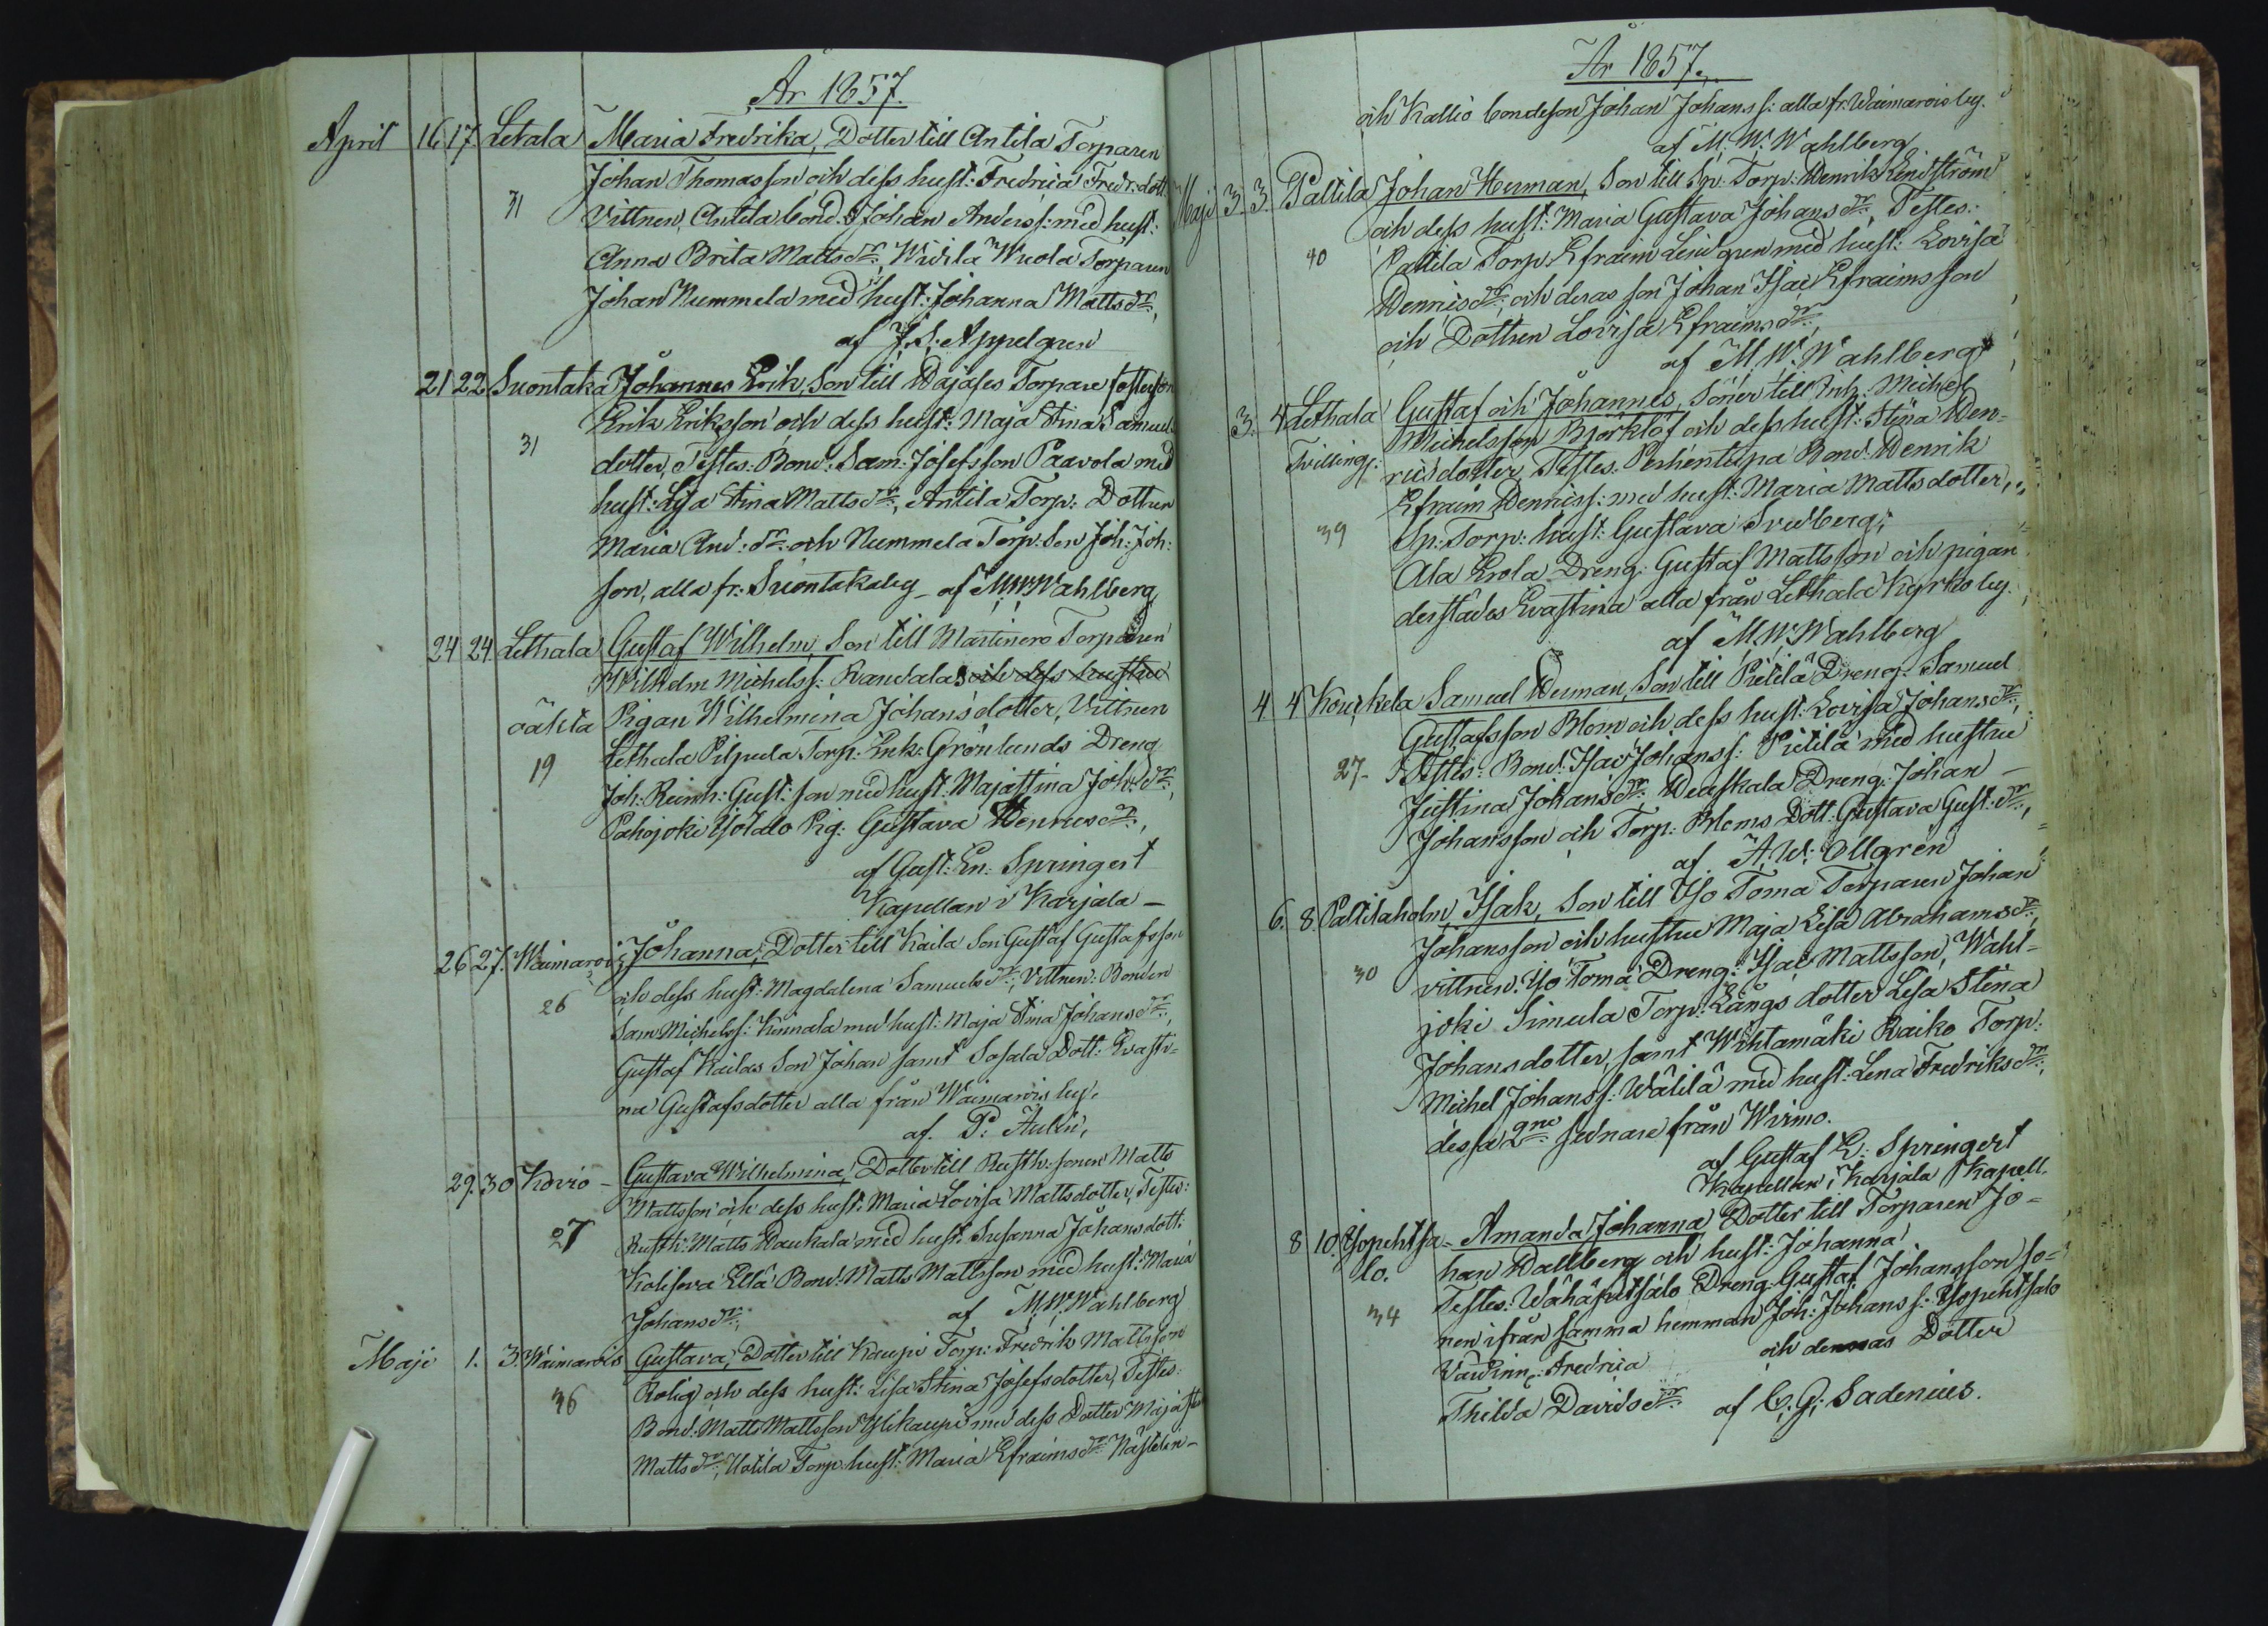 År 1857.
April 16 17 Letala Maria Fredrika, Dotter till Antila Torparen
Johan Thomasson och dess hust: Fredrica Fredr:dott:
31 Vittnen, Antila bond: Johan Anderss: med hust:
Anna Brita Mattsdr:, Torparen
Johan Nummela med hust: Johanna Mattsdr:,
af J. S. Appelgren
21 22 Suontaka Johannes Erik, Son till Torpare
Erik Eriksson och dess hust: Maja Stina Samuels
31 dotter, Testes: Bond: Sam: Josefsson Paavola med
hust: Lisa Stina Mattsdr:, Antila Torp: Dottren
Maria And: dr: och Nummela Torp: Son Joh: Joh:
son, alla fr: Suontaka by af M. W. Wahlberg
24 24 Lethala Gustaf Wilhelm, Son till Torparen
Wilhelm Michelss: och dess hustru
oäkta Pigan Wilhelmina Johansdotter, Vittnen
Lethala Pilpula Torp: Enk: Grönlunds Dreng
19 Joh: Reinh: Gust: son med hust: Majastina Joh: dr:,
Pahojoki Yötalo Pig: Gustava Henricsdr:,
af Gust: En: Springert
Kapellan i Karjala –
26 27. Waimarois Johanna, Dotter till Kaila Son Gustaf Gustafsson
26 och dess hust: Magdalena Samuelsdr:, Vittnen: Bonden
Sam Michelss: Kinnala med hust: Maja Stina Johansdr:,
Gustaf Kailas Son Johan samt Sosala Dott: Evasti=
na Gustafsdotter alla från Waimarois by.
af. P: Aulin,
29. 30 Kovio – Gustava Wilhelmina, Dotter till Rusth: sonen Matts
Mattsson och dess hust: Maria Lovisa Mattsdotter, Testes:
27 Rusth: Matts Haukala med hust: Susanna Johansdott:
Ellä Bond: Matts Mattsson med hust: Maria
Johansdr:, af M. W. Wahlberg
Maji 1. 3. Waimarois Gustava, Dotter till Kaupi Torp: Fredrik Mattsson
36 Rolig och dess hust: Lisa Stina Josefsdotter, Testes:
Bond: Matts Mattsson Ylikaupi med dess Dotter Maja
Mattsdr:, Uotila Torp: hust: Maria Efraimsdr:
År 1857.
och Kallio bondeson Johan Johanss: alla fr: Waimarois by.
af M. W. Wahlberg
Maji 3. 3. Paltila Johan Herman, Son till Sp: Torp: Henrik Lindström
och dess hust: Maria Gustava Johansdr:, Testes:
40 Paltila Torp Efraim Lindgren med hust: Lovisa
Henricsdr:, och deras son Johan Isac Efraimsson
och Dottren Lovisa Efraimsdr:,
af M. W. Wahlberg
3. 4 Lethala Gustaf och Johannes, Söner till Inh: Michel
Michelsson Björklöf och dess hust: Stina Hen=
Tvilling: ricsdotter, Testes. Bond: Henrik
Efraim Henricss: med hust: Maria Mattsdotter,
39 Sp: Torp: hust: Gustava Svedberg,
Ala Erola Dreng: Gustaf Mattsson och pigan
derstädes Evastina alla från Lethala Kyrkoby.
af M. W. Wahlberg
4 4 Kouckela Samuel Herman, Son till Pietilä Dreng: Samuel
Gustafsson Blom och dess hust: Lovisa Johansdr:,
27– Testes: Bond: Isac Johanss: Pietilä med hustru
Justina Johansdr:, Dreng: Johan –
Johansson och Torp: Bloms Dott: Gustava Gust: dr:,
af A. W. Ollgren
6. 8. Paltilaholm Isak, Son till Iso Toma Torparen Johan
Johansson och hustru Maja Lisa Abrahamsdr:,
30 vittnen: Iso Toma Dreng: Isac Mattsson, Wahl=
joki Simula Torp: Långs dotter Lisa Stina
Johansdotter, samt Wihtamäki Raiko Torp:
Michel Johanss: Wälilä med hust: Lena Fredriksdr:,
dessa 2ne sednare från Wirmo.
af Gustaf E: Springert
Kapellan i Karjala Kapell.
8 10. Isopehtsa= Amanda Johanna Dotter till Torparen Jo=
lo. han Hallberg och hust: Johanna
Testes: Wähäpehtsalo Dreng: Gustaf Johansson so=
34 nen ifrån samma hemman Joh: Johanss: Isopehtsalo
Värdinn: Fredrica och dennas Dotter
Thilda Davidsdr: af C. G: Sadenius.